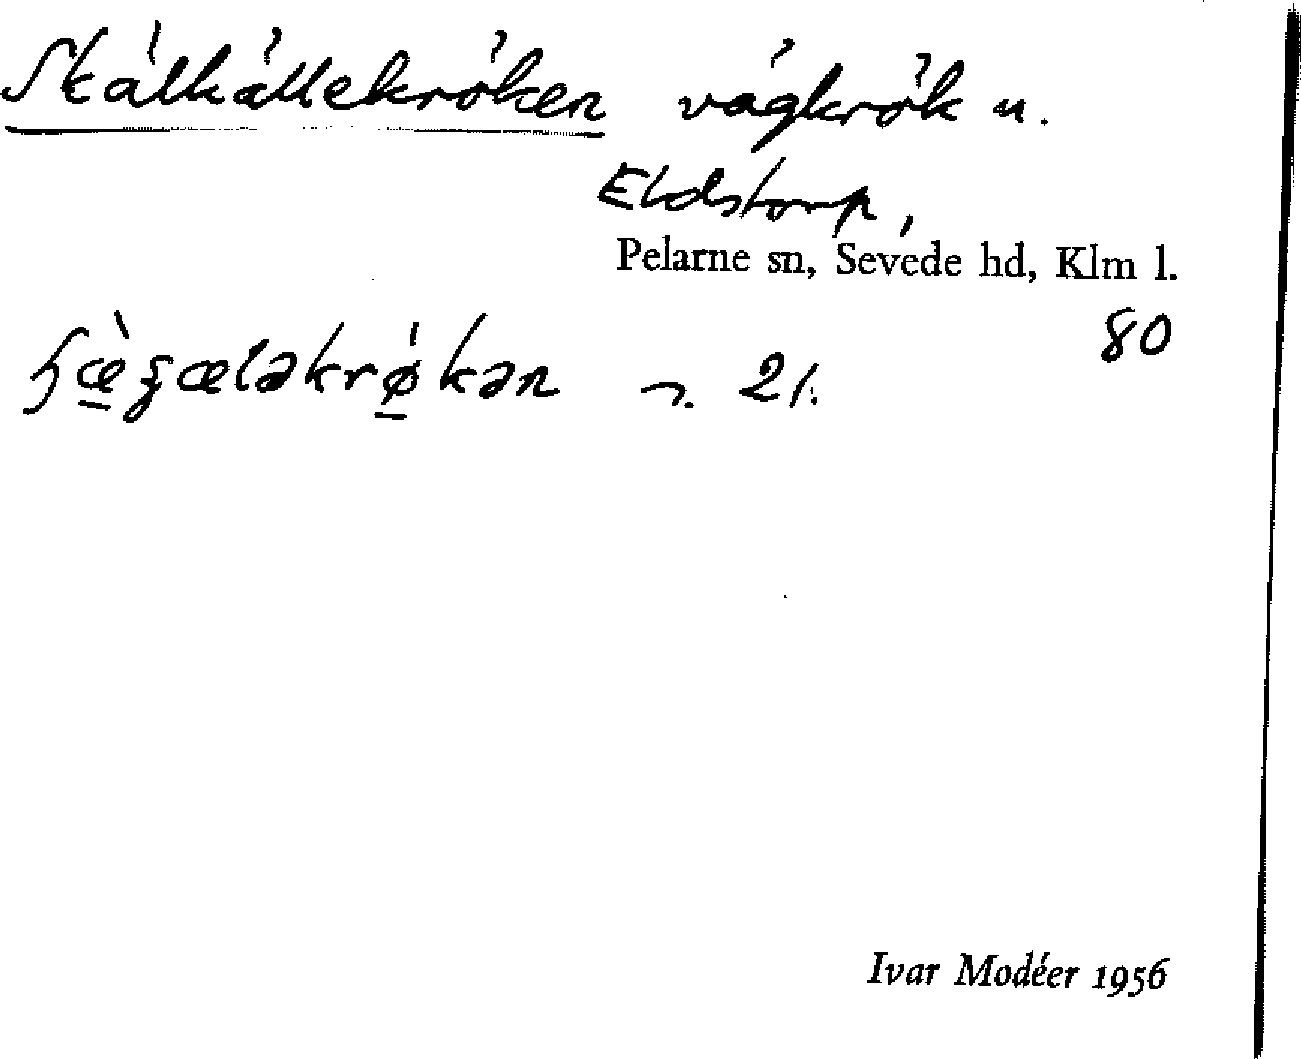 Skälkällekröken vägkrök u.
Eldstorp,
Pelarne sn, Sevede hd, Klm l.
80
21.
Ivar Modéer 1956